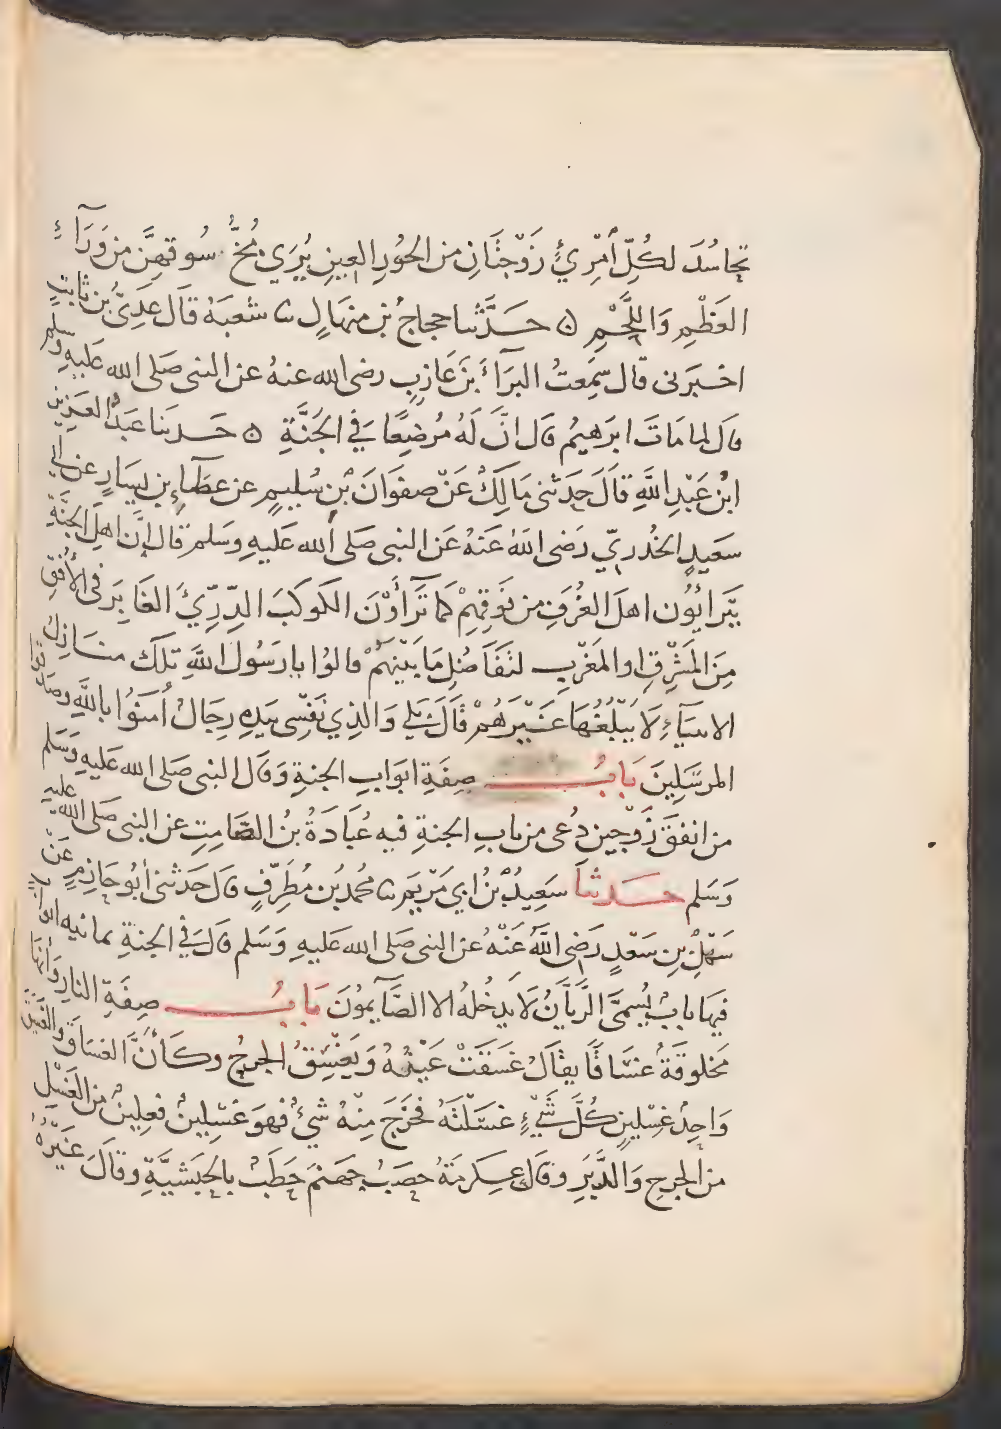 تحاسُدَ لكُلِّ اَمْرِئٍ زَوْجَتَانِ من الحُورِ العِينِ يُرَي مُخُّ سُوقهِنَّ من وَرَآءِ
العَظْمِ وَاللَّحْمِ ۞ حَدَّثنا حجاجُ بن منهَالٍ ثنا شعبَةُ قَالَ عَدِيُّ بن ثابتٍ
اخبَرَنى قَال سَمِعتُ البَرَاءَ بنَ عَازبٍ رضى الله عنهُ عن النبى صَلى الله عَليهِ وسلم
قال لما مَاتَ ابرَهيمُ قَال انَّ لَهُ مُرضِعًا فِي الجَنَّةِ ۞ حَدثنا عَبدُ العَزيز بن
ابْنُ عَبْدِ اللَّهِ قالَ حَدثنى مَالِكٌ عَنْ صفوَانَ بْنِ سُلَيمٍ عن عطَآءِ بن يسَارٍ عن ابي
سَعيدٍ الخُدريّ رَضى اللهُ عَنهُ عَن النبى صَلى الله عَليهِ وَسَلم قال اِنَّ اهلَ الجَنَّةِ
يتَرائوُن اهلَ الغُرَفِ من فَوقِهِمْ كما تَرَآأَوْنَ الكَوكبَ الدِّرِّيَّ الغَابِرَ فى الأُفقِ
مِنَ المَشْرِقِ او المَغْرِب لتَفَاضُلِ مَا بَيْنَهُمْ قالوُا يا رَسُولَ اللَّهِ تلكَ منَازِلُ
الانبيَآءِ لَا يَبْلُغُهَا غَيْرَهُمْ قَالَ بَلَي وَالذِي نَفْسِى بيَدِهِ رِجَالٌ اٰمَنُوا باللَّهِ وصَدقوا
المرسَلِينَ بَابُ صِفَةِ ابوَابِ الجنةِ وَقَال النبى صَلى الله عَليهِ وَسَلم
من انفقَ زَوْجين دُعى من بابِ الجنةِ فيهِ عُبَادَةُ بنُ الصَّامِتِ عن النبى صَلى الله عليهِ
وَسَلم حَدثنَا سَعِيدُ بْنُ ابي مَرْيمَ ثنا محمدُ بن مُطرِّفٍ قال حَدثنى أبُو حَازمٍ عَنْ
سَهْلِ بن سَعْدٍ رَضى اللَّهُ عَنْهُ عن النبى صَلى الله عَليهِ وَسَلم قَالَ فِي الجنةِ ثمانيه ابوابٍ
فِيهَا بابٌ يُسمىَّ الرَّيَّانُ لَا يَدخُلهُ الا الصَّآيموُنَ بَابُ صِفَةِ النارِ وَأنهَا
مَخلوقَةٌ غسَّاقًا يقَالُ غَسَقَتْ عَيْنُهُ وَيَغْسِقُ الجرحُ وكَأَنَّ الغسَاقَ والغَسْقَ
وَاحِدٌ غِسْلِينٍ كُلّ شَيْءٍ غسَلْتَهُ فخَرَجَ مِنْهُ شيْءٌ فهوَ غسْلِينٌ فعلِينٌ من الغَسْلِ
من الجرحِ وَالدَّبَرِ وقَالَ عِكرمَةُ حصَبُ جهَنمَ حَطَبٌ بالحبَشيَّةِ وقالَ غيَرُهُ